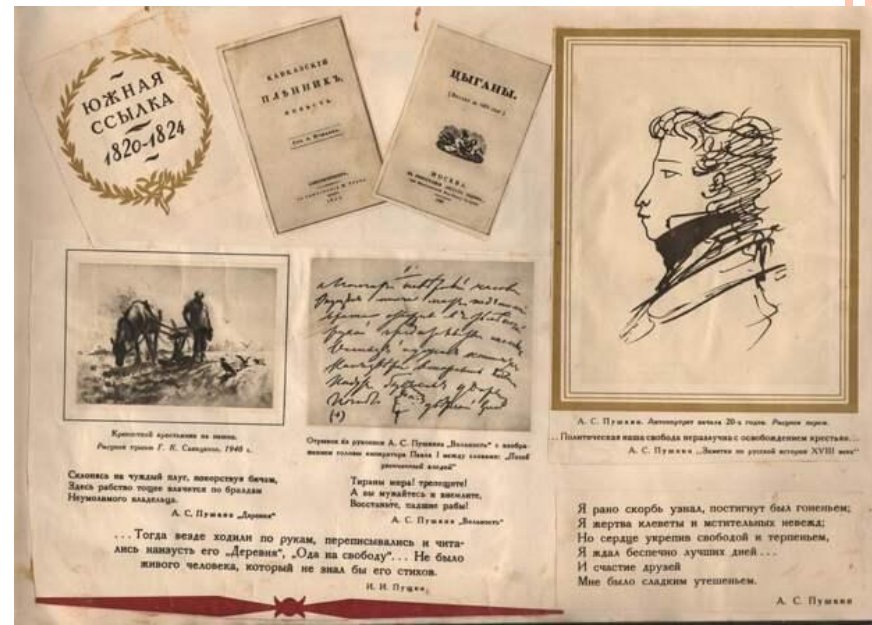 ЮЖНАЯ
ССЫЛКА
1820-1824
КАВКАЗСКІЙ
ПЛѢННИКЪ,
ПОВѢСТЬ.
ЦЫГАНЫ.
МОСКВА.
Крепостной крестьянин на пашне.
Рисунок тушью Г. К. Савицкого, 1940 г.
Склонясь на чуждый плуг, покорствуя бичам,
Здесь рабство тощее влачится по браздам
Неумолимого владельца.
А. С. Пушкин „Деревня"
Отрывок из рукописи А. С. Пушкина „Вольность" с изобра-
жением головы императора Павла I между словами: „Погиб
увенчанный злодей"
Тираны мира! трепещите!
А вы мужайтесь и внемлите,
Восстаньте, падшие рабы!
А. С. Пушкин „Вольность"
...Тогда везде ходили по рукам, переписывались и чита-
лись наизусть его „Деревня", „Ода на свободу"... Не было
живого человека, который не знал бы его стихов.
И. И. Пущин.
А. С. Пушкин. Автопортрет начала 20-х годов. Рисунок пером.
..Политическая наша свобода неразлучна с освобождением крестьян...
А. С. Пушкин „Заметки по русской истории XVIII века"
Я рано скорбь узнал, постигнут был гоненьем;
Я жертва клеветы и мстительных невежд;
Но сердце укрепив свободой и терпеньем,
Я ждал беспечно лучших дней...
И счастие друзей
Мне было сладким утешеньем.
А. С. Пушкин